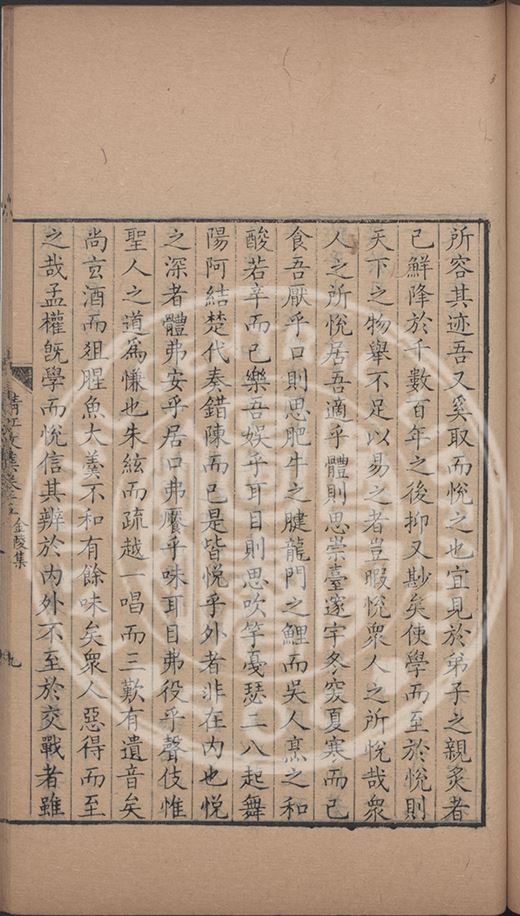 所容其迹吾又奚取而悦之也宜見於弟子之親炙者
已鮮降於千數百年之後抑又尠矣使學而至於悦則
天下之物舉不足以易之者豈暇悦衆人之所悦哉衆
人之所悦居吾適乎體則思崇臺邃宇冬突夏寒而已
食吾厭乎口則思肥牛之腱龍門之鯉而吳人烹之和
酸若辛而已樂吾娛乎耳目則思吹竽戞瑟二八起舞
陽阿結楚代秦錯陳而已是皆悦乎外者非在内也悦
之深者體弗安乎居口弗饜乎味耳目弗役乎聲伎惟
聖人之道爲慊也朱絃而疏越一唱而三歎有遺音矣
尚玄酒而俎腥魚大羹不和有餘味矣衆人惡得而至
之哉孟權旣學而悦信其辨於内外不至於交戰者雖
清江文集卷之五 金陵集 九